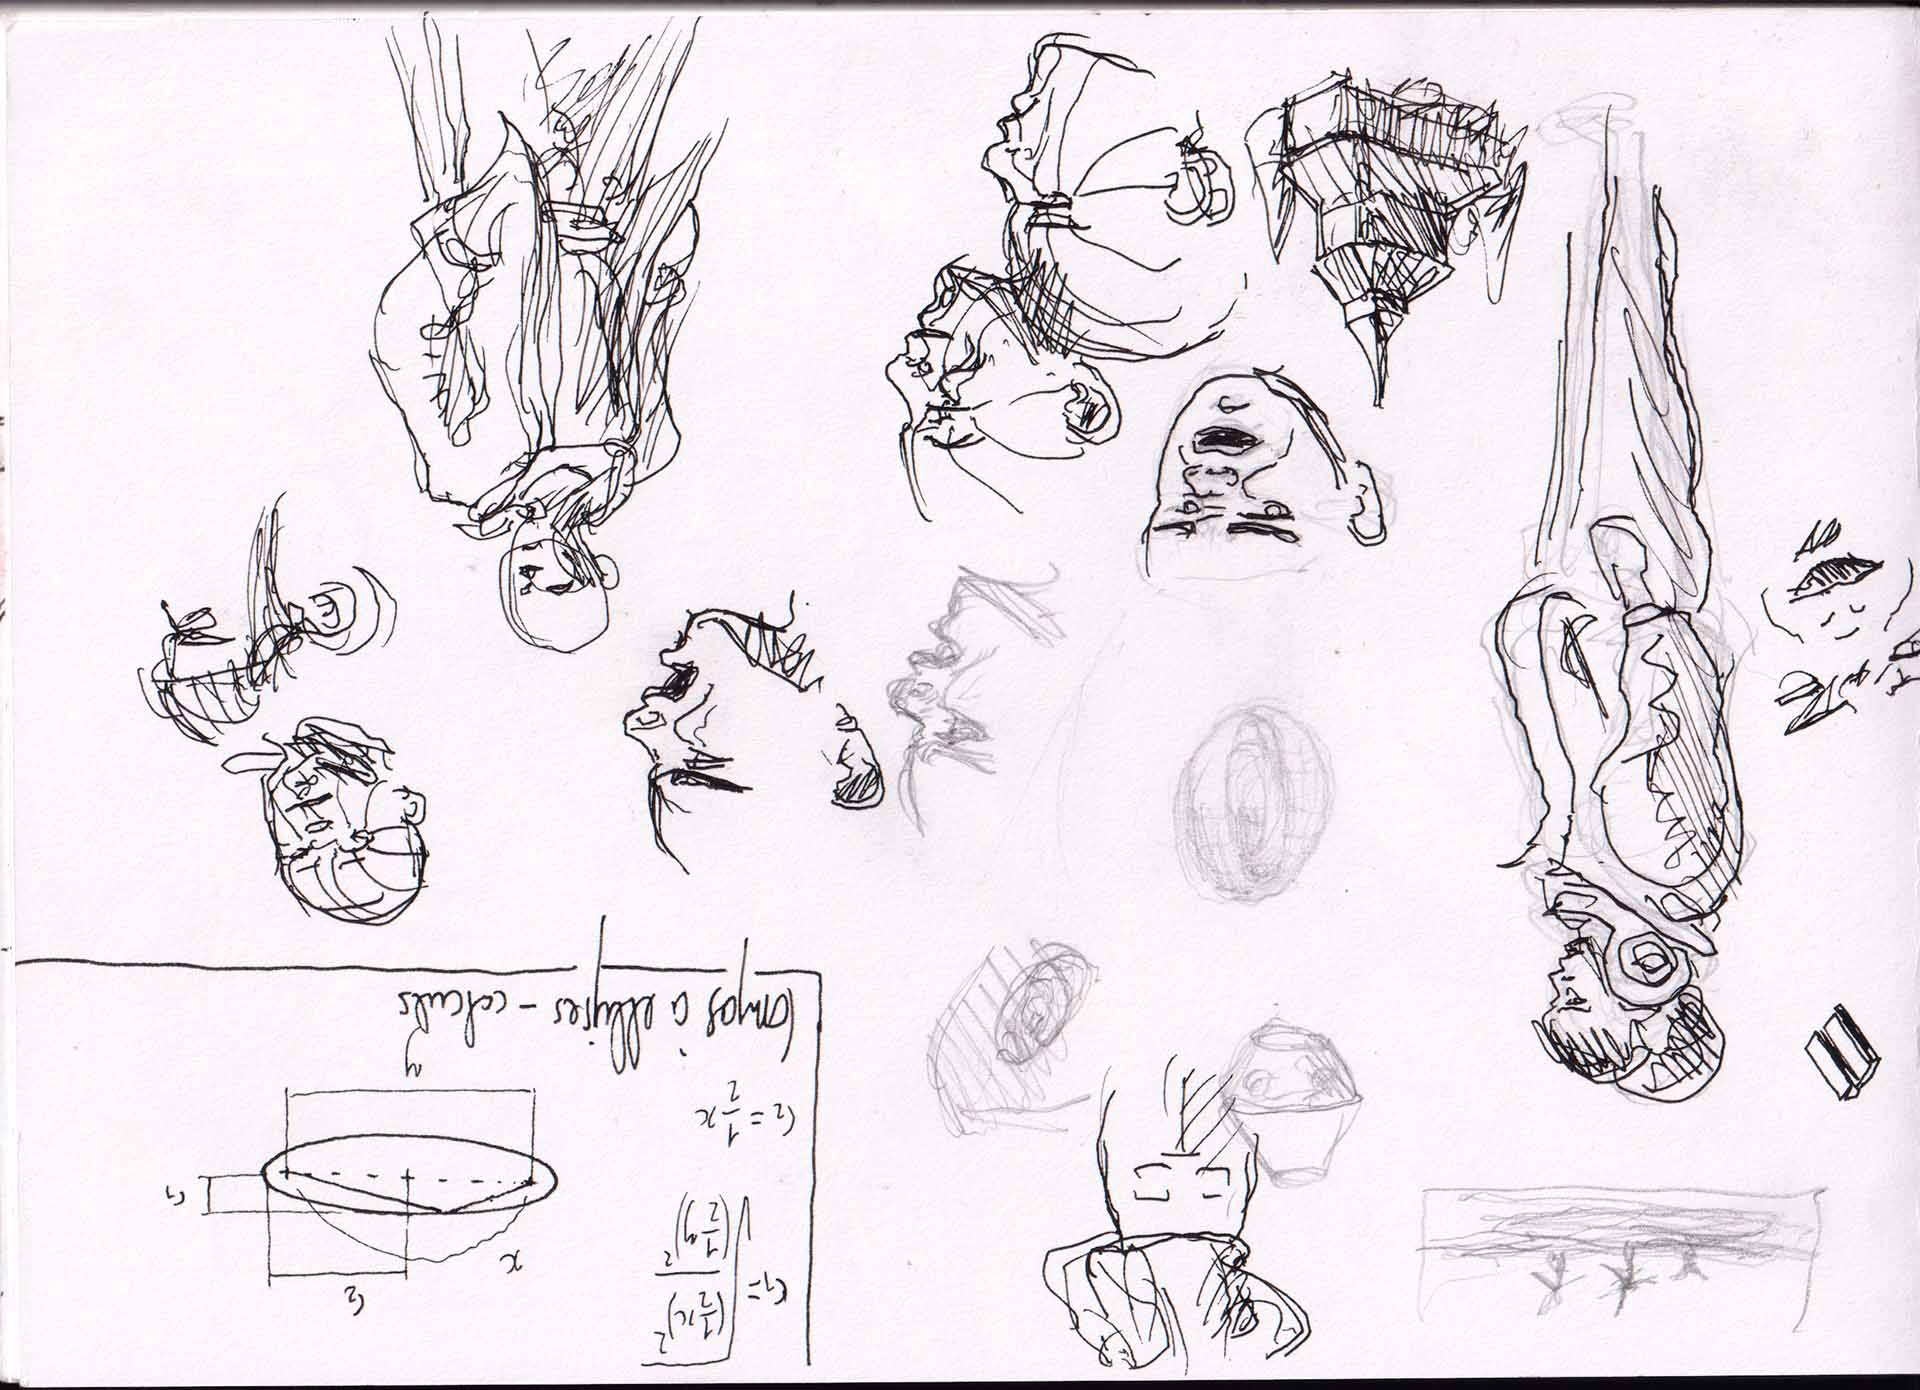 r₁ = √((1/2 x)² / (1/2 y)²)
r₂
x
r₁
r₂ = 1/2 x
y
Compas à ellipses - calculs